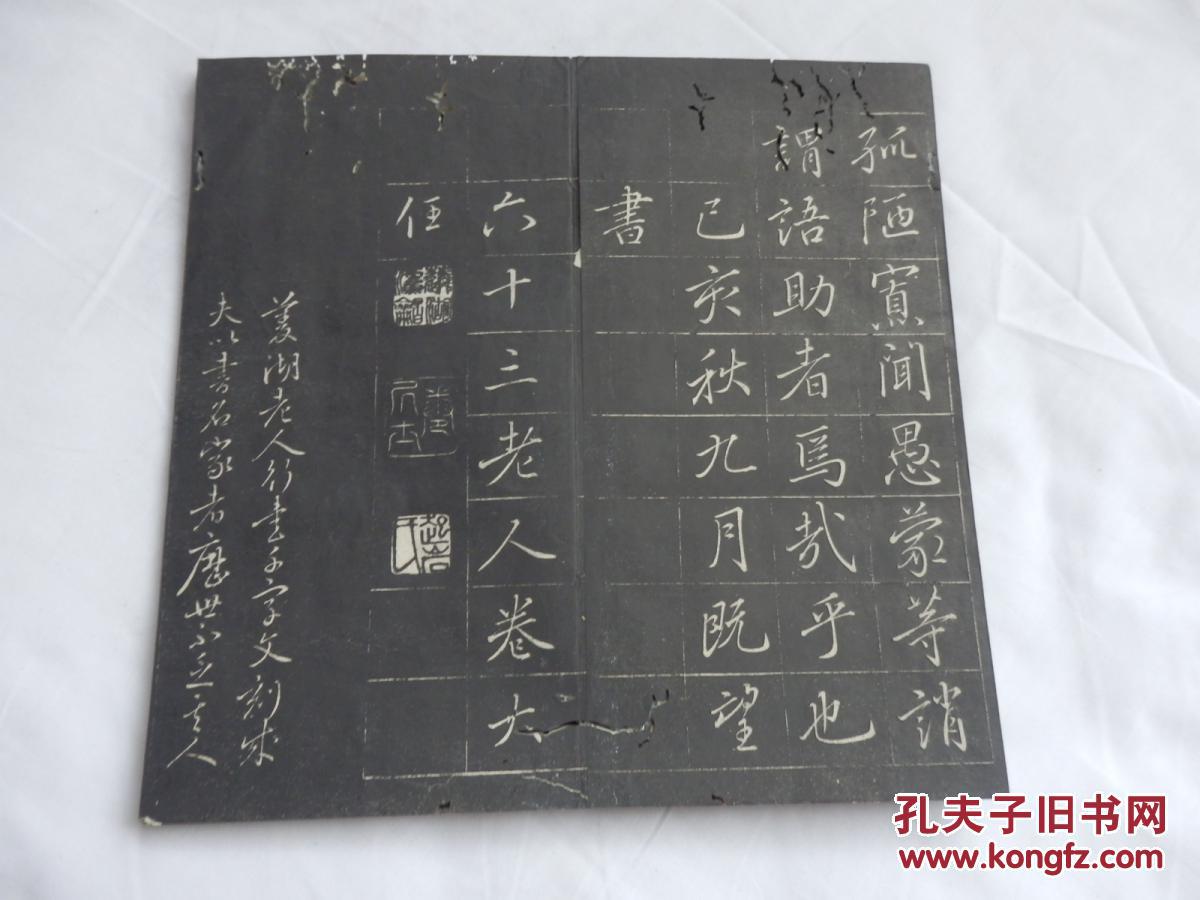 孤陋寡聞愚蒙等誚
謂語助者焉哉乎也
己亥秋九月既望
書
六十三老人卷大
任
菱湖老人行書千字文刻成
夫以書名家者歷世不乏其人
孔夫子旧书网
www.kongfz.com